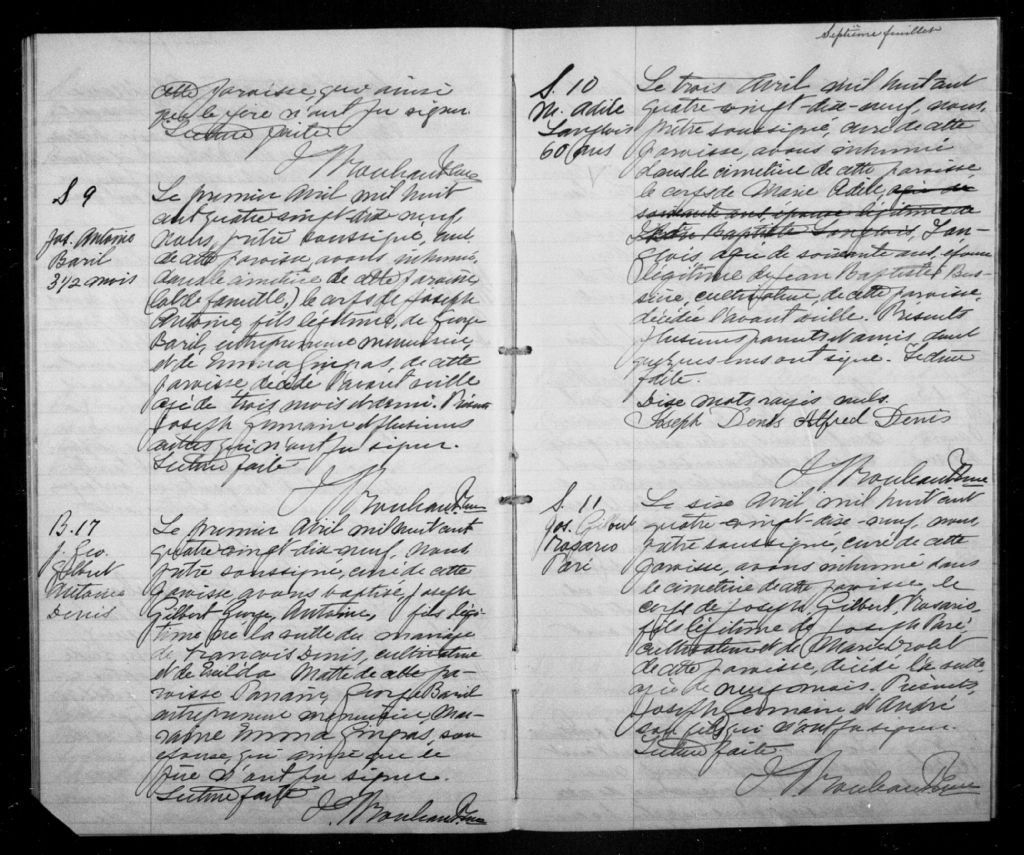 Septième feuillet
cette paroisse, qui ainsi
que le père n'ont pu signer.
Lecture faite.
J. Rouleau Ptre
S 9
Jos. Antonio
Baril
3 1/2 mois
Le premier Avril mil huit
cent quatre vingt-dix-neuf,
nous, prêtre soussigné, curé
de cette paroisse, avons inhumé
dans le cimetière de cette paroisse
(lot de famille,) le corps de Joseph
Antonio, fils légitime, de George
Baril, entrepreneur menuisier,
et de Emma Gingras, de cette
paroisse, décédé l'avant veille
agé de trois mois et demi. Présents
Joseph Germain et plusieurs
autres qui n'ont pu signer.
Lecture faite
J. Rouleau Ptre
B. 17
J. Geo.
Gilbert
Antonio
Denis
Le premier Avril mil huit cent
quatre vingt-dix-neuf, nous
prêtre soussigné, curé de cette
paroisse avons baptisé, Joseph
Gilbert George, Antoine, fils légi-
time né la suite du mariage
de François Denis, cultivateur
et de Exilda Matte de cette pa-
roisse Parrain, George Baril
entrepreneur menuisier, Mar-
raine Emma Gingras, son
épouse, qui ainsi que le
père n'ont pu signer.
Lecture faite
J. Rouleau Ptre
S. 10
M. Adile
Langlois
60 ans
Le trois Avril mil huit cent
quatre-vingt-dix-neuf, nous,
prêtre soussigné, curé de cette
paroisse, avons inhumé
dans le cimetière de cette paroisse
le corps de Marie Adele agée de
soixante ans, épouse légitime de
Baptiste Langlois, Lan-
glois agée de soixante ans, épouse
légitime de Jean Baptiste
cultivateur, de cette paroisse,
décédée l'avant veille. Présents
plusieurs parents et amis, dont
quelques uns ont signé. Lecture
faite.
Dixe mots rayés nuls.
Joseph Denis Alfred Denis
J. Rouleau Ptre
S. 11
Jos. Gilbert
Rosario
Paré
Le sixe Avril mil huit cent
quatre-vingt-dix-neuf, nous,
prêtre soussigné, curé de cette
paroisse, avons inhumé dans
le cimetière de cette paroisse, le
corps de Joseph, Gilbert, Rosario,
fils légitime de Joseph Paré
cultivateur et de Marie Drolet
de cette paroisse, décédé la veille,
agé de neuf mois. Présents,
Joseph Germain et André
son fils qui n'ont pu signer.
Lecture faite
J. Rouleau Ptre